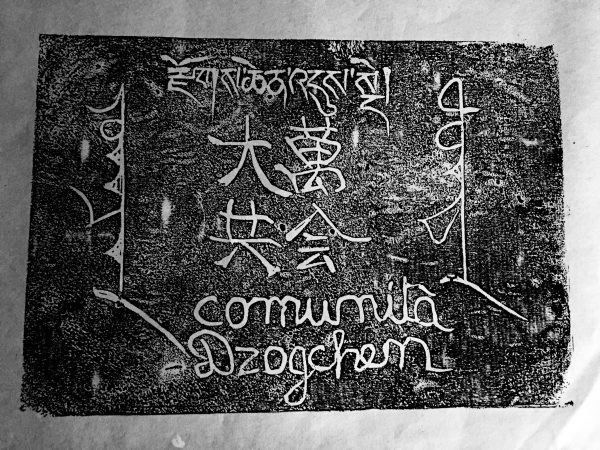 རྫོགས་ཆེན་འདུས་སྡེ།
大萬
共会
comunità
Dzogchen